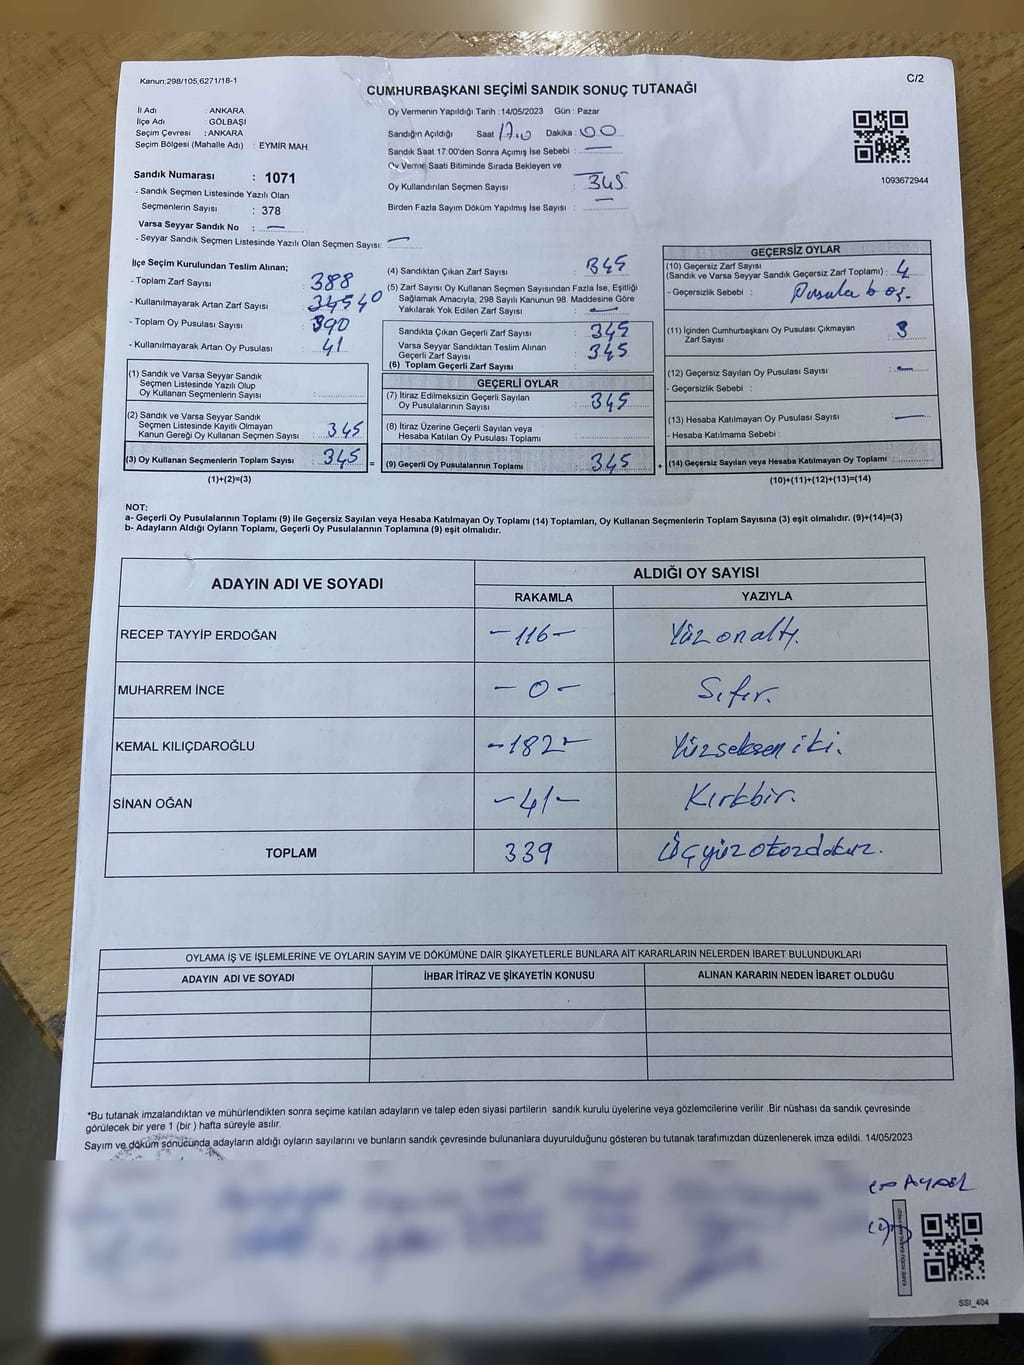 Kanun:298/105,6271/18-1
C/2
CUMHURBAŞKANI SEÇİMİ SANDIK SONUÇ TUTANAĞI
İl Adı : ANKARA
İlçe Adı : GÖLBAŞI
Seçim Çevresi : ANKARA
Seçim Bölgesi (Mahalle Adı) : EYMİR MAH.
Sandık Numarası : 1071
- Sandık Seçmen Listesinde Yazılı Olan
Seçmenlerin Sayısı : 378
Varsa Seyyar Sandık No : —
- Seyyar Sandık Seçmen Listesinde Yazılı Olan Seçmen Sayısı: —
Oy Vermenin Yapıldığı Tarih : 14/05/2023 Gün : Pazar
Sandığın Açıldığı Saat 17.00 Dakika : 00
Sandık Saat 17:00'den Sonra Açımış İse Sebebi : —
Oy Verme Saati Bitiminde Sırada Bekleyen ve
Oy Kullandırılan Seçmen Sayısı : 345
Birden Fazla Sayım Döküm Yapılmış İse Sayısı : —
1093672944
İlçe Seçim Kurulundan Teslim Alınan;
- Toplam Zarf Sayısı : 388
- Kullanılmayarak Artan Zarf Sayısı : 345 40
- Toplam Oy Pusulası Sayısı : 390
- Kullanılmayarak Artan Oy Pusulası : 41
(1) Sandık ve Varsa Seyyar Sandık
Seçmen Listesinde Yazılı Olup
Oy Kullanan Seçmenlerin Sayısı :
(2) Sandık ve Varsa Seyyar Sandık
Seçmen Listesinde Kayıtlı Olmayan
Kanun Gereği Oy Kullanan Seçmen Sayısı : 345
(3) Oy Kullanan Seçmenlerin Toplam Sayısı : 345
(1)+(2)=(3)
=
(4) Sandıktan Çıkan Zarf Sayısı : 345
(5) Zarf Sayısı Oy Kullanan Seçmen Sayısından Fazla İse, Eşitliği
Sağlamak Amacıyla; 298 Sayılı Kanunun 98. Maddesine Göre
Yakılarak Yok Edilen Zarf Sayısı : —
Sandıkta Çıkan Geçerli Zarf Sayısı : 345
Varsa Seyyar Sandıktan Teslim Alınan
Geçerli Zarf Sayısı : 345
(6) Toplam Geçerli Zarf Sayısı :
GEÇERLİ OYLAR
(7) İtiraz Edilmeksizin Geçerli Sayılan
Oy Pusulalarının Sayısı : 345
(8) İtiraz Üzerine Geçerli Sayılan veya
Hesaba Katılan Oy Pusulası Toplamı :
(9) Geçerli Oy Pusulalarının Toplamı : 345
+
GEÇERSİZ OYLAR
(10) Geçersiz Zarf Sayısı
(Sandık ve Varsa Seyyar Sandık Geçersiz Zarf Toplamı) : 4
- Geçersizlik Sebebi : Pusula boş.
(11) İçinden Cumhurbaşkanı Oy Pusulası Çıkmayan
Zarf Sayısı : 3
(12) Geçersiz Sayılan Oy Pusulası Sayısı : —
- Geçersizlik Sebebi :
(13) Hesaba Katılmayan Oy Pusulası Sayısı : —
- Hesaba Katılmama Sebebi :
(14) Geçersiz Sayılan veya Hesaba Katılmayan Oy Toplamı :
(10)+(11)+(12)+(13)=(14)
NOT:
a- Geçerli Oy Pusulalarının Toplamı (9) ile Geçersiz Sayılan veya Hesaba Katılmayan Oy Toplamı (14) Toplamları, Oy Kullanan Seçmenlerin Toplam Sayısına (3) eşit olmalıdır. (9)+(14)=(3)
b- Adayların Aldığı Oyların Toplamı, Geçerli Oy Pusulalarının Toplamına (9) eşit olmalıdır.
ADAYIN ADI VE SOYADI ALDIĞI OY SAYISI
RAKAMLA YAZIYLA
RECEP TAYYİP ERDOĞAN -116- Yüzonaltı.
MUHARREM İNCE -0- Sıfır.
KEMAL KILIÇDAROĞLU -182- Yüzseksen iki.
SİNAN OĞAN -41- Kırkbir.
TOPLAM 339 Üçyüzotuzdokuz.
OYLAMA İŞ VE İŞLEMLERİNE VE OYLARIN SAYIM VE DÖKÜMÜNE DAİR ŞİKAYETLERLE BUNLARA AİT KARARLARIN NELERDEN İBARET BULUNDUKLARI
ADAYIN ADI VE SOYADI İHBAR İTİRAZ VE ŞİKAYETİN KONUSU ALINAN KARARIN NEDEN İBARET OLDUĞU
*Bu tutanak imzalandıktan ve mühürlendikten sonra seçime katılan adayların ve talep eden siyasi partilerin sandık kurulu üyelerine veya gözlemcilerine verilir .Bir nüshası da sandık çevresinde
görülecek bir yere 1 (bir ) hafta süreyle asılır.
Sayım ve döküm sonucunda adayların aldığı oyların sayılarını ve bunların sandık çevresinde bulunanlara duyurulduğunu gösteren bu tutanak tarafımızdan düzenlenerek imza edildi. 14/05/2023
SSI_404